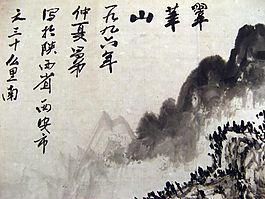 翠華山
一九九六年
仲夏弟
写於陝西省西安市
之三十公里南